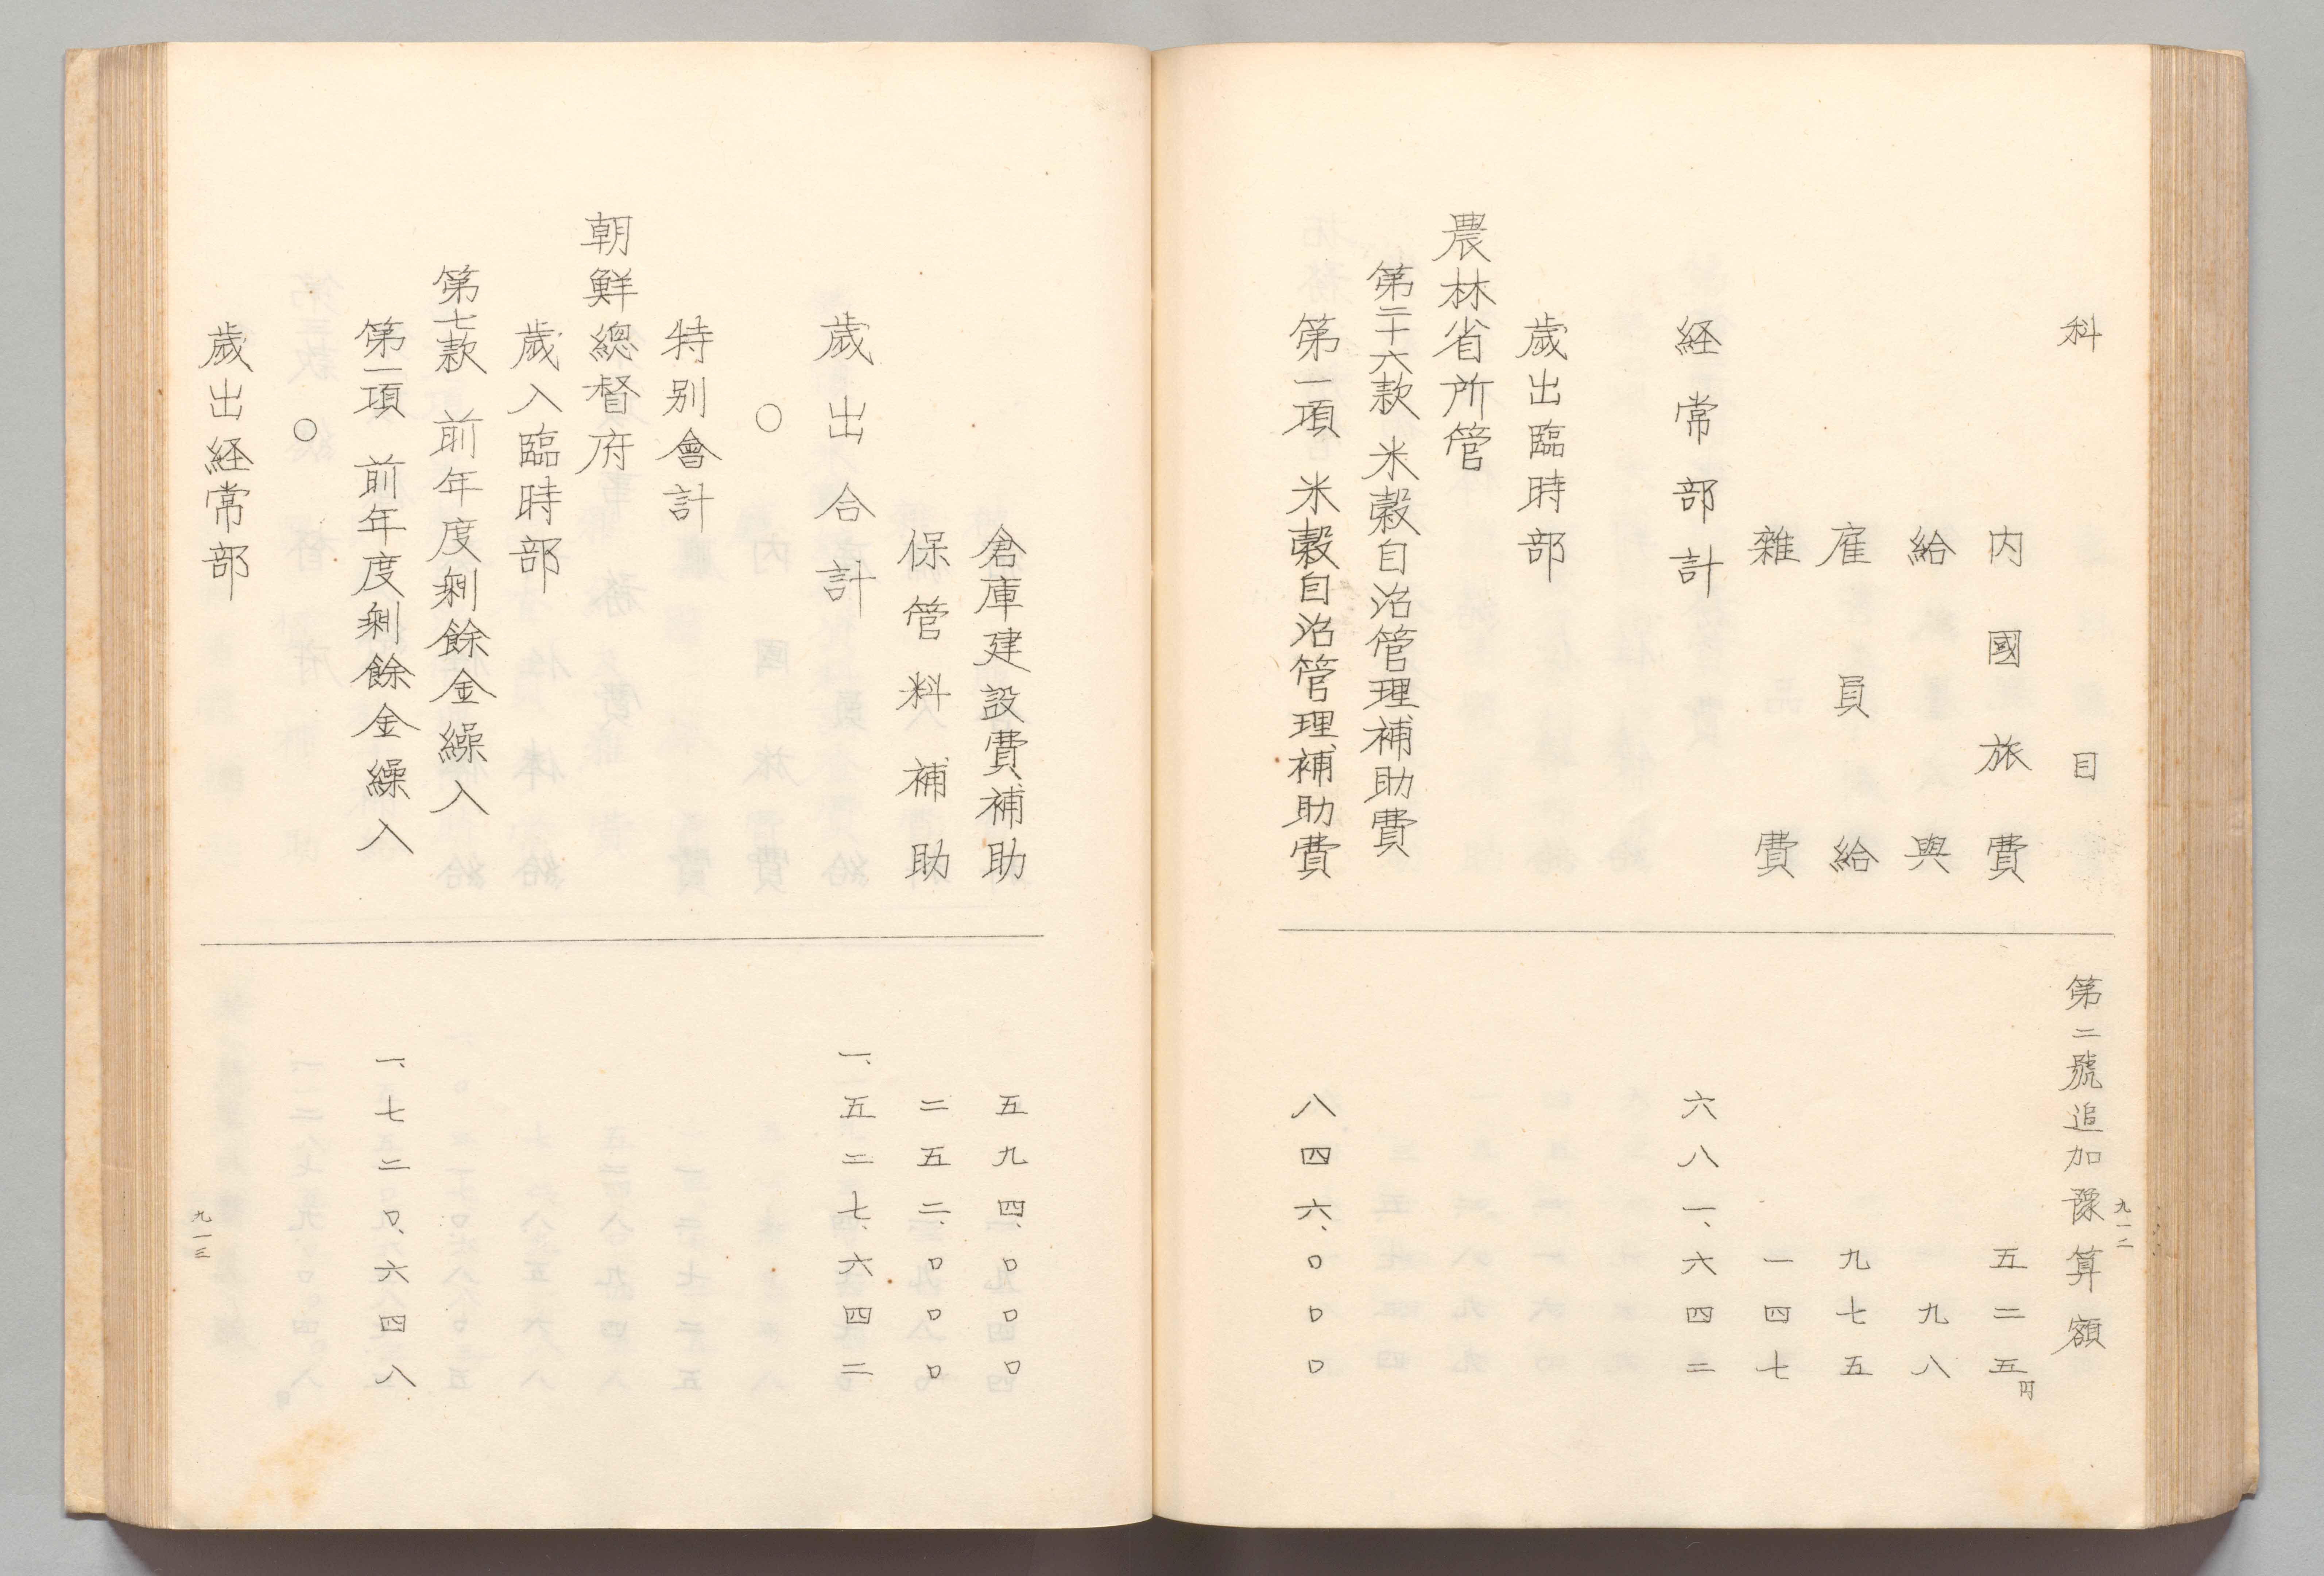 科目 第二號追加豫算額
内國旅費 五二五円
給與 九八
雇員給 九七五
雜費 一四七
経常部計 六八一、六四二
歳出臨時部
農林省所管
第二十六款 米穀自治管理補助費
第一項 米穀自治管理補助費 八四六、〇〇〇
九一二
倉庫建設費補助 五九四、〇〇〇
保管料補助 二五二、〇〇〇
歳出合計 一、五二七、六四二
〇
特別會計
朝鮮總督府
歳入臨時部
第七款 前年度剰餘金繰入
第一項 前年度剰餘金繰入 一、七二〇、六四八
〇
歳出経常部
九一三